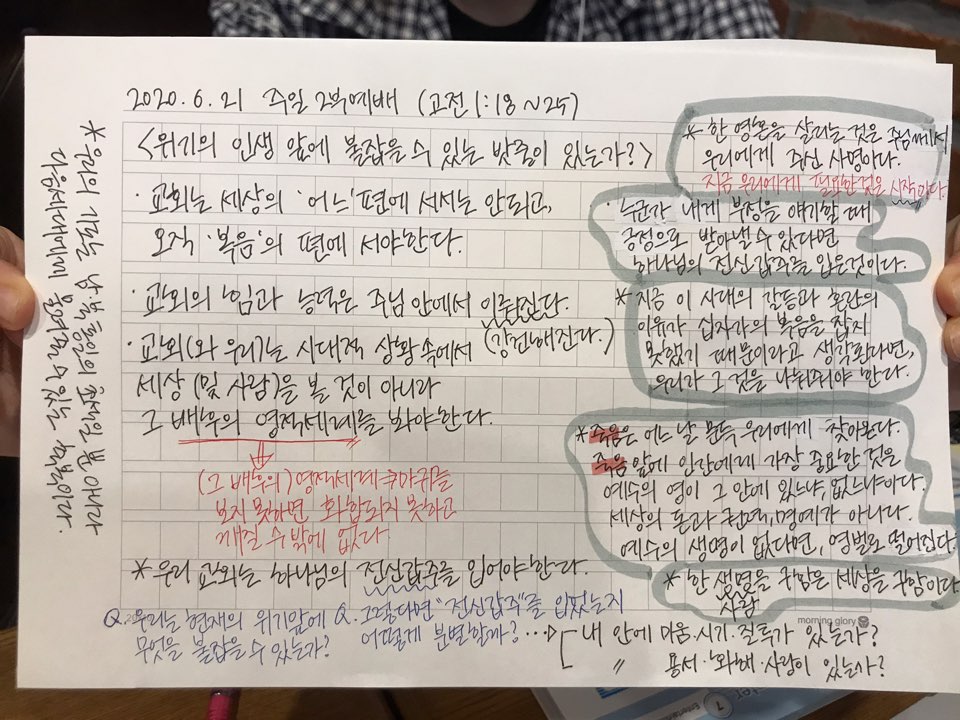 2020. 6. 21 주일 2부예배 (고전 1:18 ~25)
<위기의 인생 앞에 붙잡을 수 있는 밧줄이 있는가?>
· 교회는 세상의 '어느'편에 서서는 안되고,
오직 '복음'의 편에 서야한다.
· 교회의 힘과 능력은 주님 안에서 이뤄진다.
(강건해진다.)
· 교회(와 우리)는 시대적 상황 속에서
세상 (및 사람)을 볼 것이 아니라
그 배후의 영적세계를 봐야한다.
(그 배후의) 영적세계 마귀를
보지 못하면 화합되지 못하고
깨질 수 밖에 없다.
* 우리 교회는 하나님의 전신갑주를 입어야한다.
Q. 우리는 현재의 위기앞에
무엇을 붙잡을 수 있는가?
Q. 그렇다면 "전신갑주"를 입었는지
어떻게 분별할까?
내 안에 미움·시기·질투가 있는가?
〃 용서·화해·사랑이 있는가?
* 한 영혼을 살리는 것은 주님께서
우리에게 주신 사명이다.
지금 우리에게 필요한 것은 시작이다.
· 누군가 내게 부정을 얘기할 때
긍정으로 받아낼 수 있다면
하나님의 전신갑주를 입은것이다.
* 지금 이 시대의 갈등과 혼란의
이유가 십자가의 복음을 잡지
못했기 때문이라고 생각된다면,
우리가 그것을 나눠줘야 한다.
* 죽음은 어느 날 문득 우리에게 찾아온다.
죽음 앞에 인간에게 가장 중요한 것은
예수의 영이 그 안에 있느냐, 없느냐이다.
세상의 돈과 권력, 명예가 아니다.
예수의 생명이 없다면, 영벌로 떨어진다.
* '한 생명을 구함은 세상을 구함이다.
사람
morning glory
* 우리의 기도는 남·북 통일의 초석일 뿐 아니라
다음세대에게 물려줄 수 있는 축복이다.